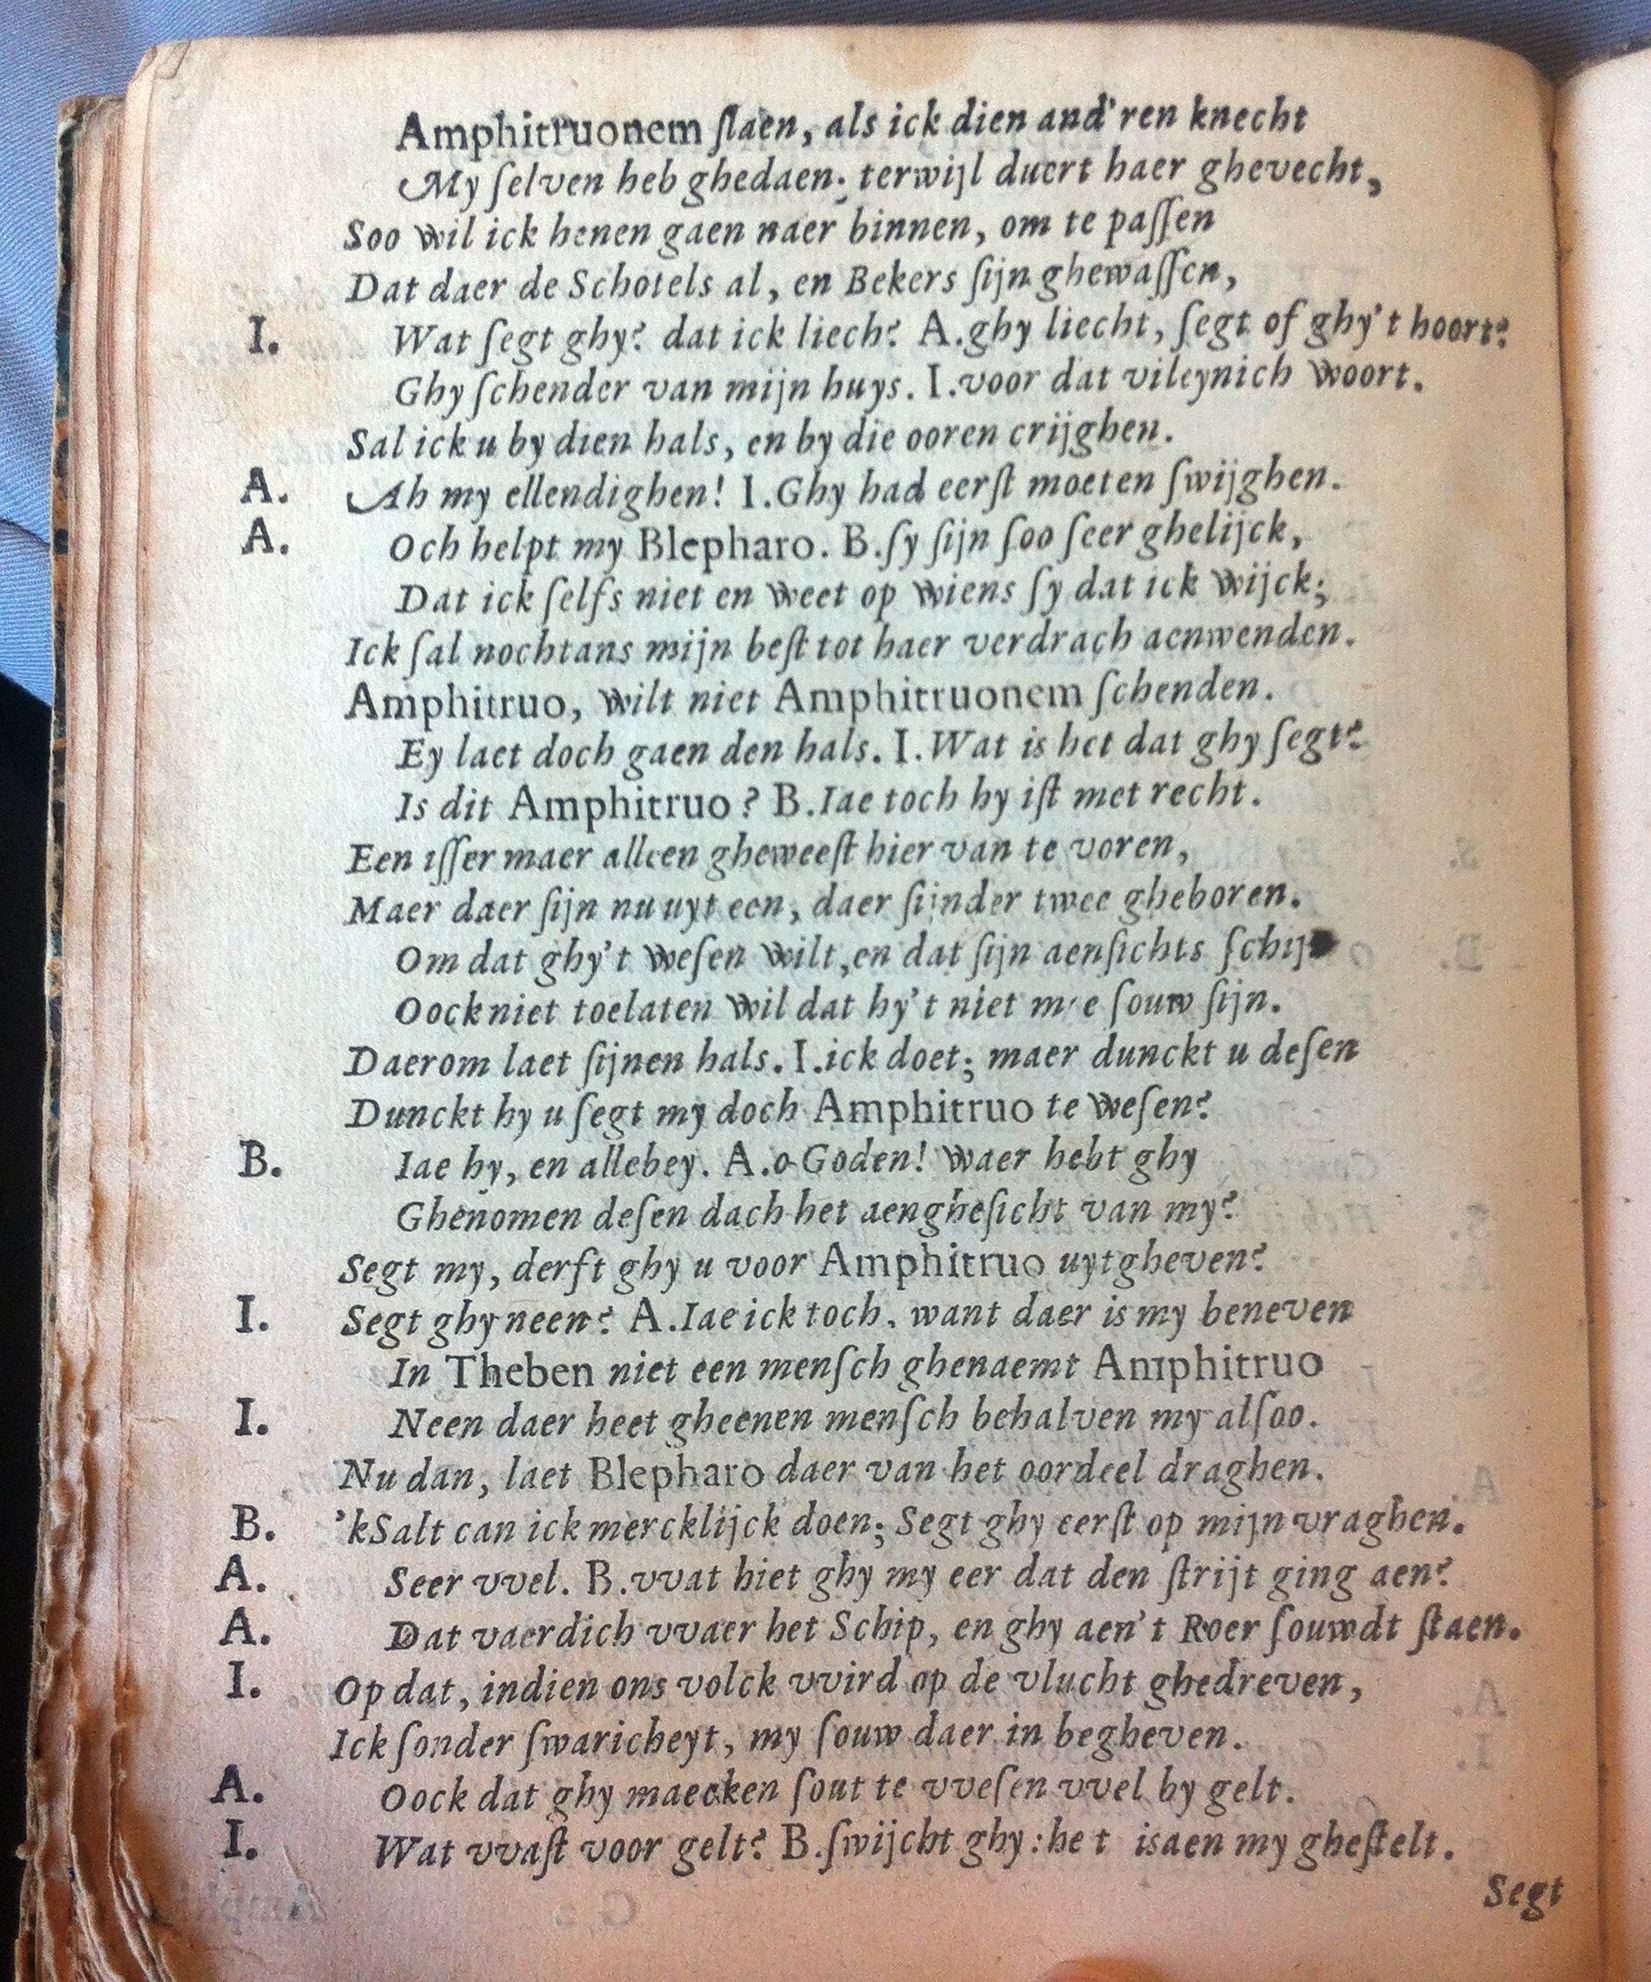 Amphitruonem ſlaen, als ick dien and'ren knecht
My ſelven heb ghedaen; terwijl duert haer ghevecht,
Soo wil ick henen gaen naer binnen, om te paſſen
Dat daer de Schotels al, en Bekers ſijn ghewaſſen,
I. Wat ſegt ghy? dat ick liech? A.ghy liecht, ſegt of ghy't hoort?
Ghy ſchender van mijn huys. I.voor dat vileynich woort.
Sal ick u by dien hals, en by die ooren crijghen.
A. Ah my ellendighen! I.Ghy had eerſt moeten ſwijghen.
A. Och helpt my Blepharo. B.ſy ſijn ſoo ſeer ghelijck,
Dat ick ſelfs niet en weet op wiens ſy dat ick wijck;
Ick ſal nochtans mijn beſt tot haer verdrach aenwenden.
Amphitruo, wilt niet Amphitruonem ſchenden.
Ey laet doch gaen den hals. I.Wat is het dat ghy ſegt?
Is dit Amphitruo? B.Iae toch hy iſt met recht.
Een iſſer maer alleen gheweeſt hier van te voren,
Maer daer ſijn nu uyt een, daer ſijnder twee gheboren.
Om dat ghy't weſen wilt, en dat ſijn aenſichts
Oock niet toelaten wil dat hy't niet mee ſouw ſijn.
Daerom laet ſijnen hals. I.ick doet; maer dunckt u deſen
Dunckt hy u ſegt my doch Amphitruo te weſen?
B. Iae hy, en allebey. A.o Goden! waer hebt ghy
Ghenomen deſen dach het aengheſicht van my?
Segt my, derft ghy u voor Amphitruo uytgheven?
I. Segt ghy neen? A.Iae ick toch, want daer is my beneven
In Theben niet een menſch ghenaemt Amphitruo
I. Neen daer heet gheenen menſch behalven my alſoo.
Nu dan, laet Blepharo daer van het oordeel draghen.
B. 'kSalt can ick mercklijck doen; Segt ghy eerſt op mijn vraghen.
A. Seer vvel. B.vvat hiet ghy my eer dat den ſtrijt ging aen?
A. Dat vaerdich vvaer het Schip, en ghy aen't Roer ſouwdt ſtaen.
I. Op dat, indien ons volck vvird op de vlucht ghedreven,
Ick ſonder ſwaricheyt, my ſouw daer in begheven.
A. Oock dat ghy maecken ſout te vveſen vvel by gelt.
I. Wat vvaſt voor gelt? B.ſwijcht ghy: het isaen my gheſtelt.
Segt